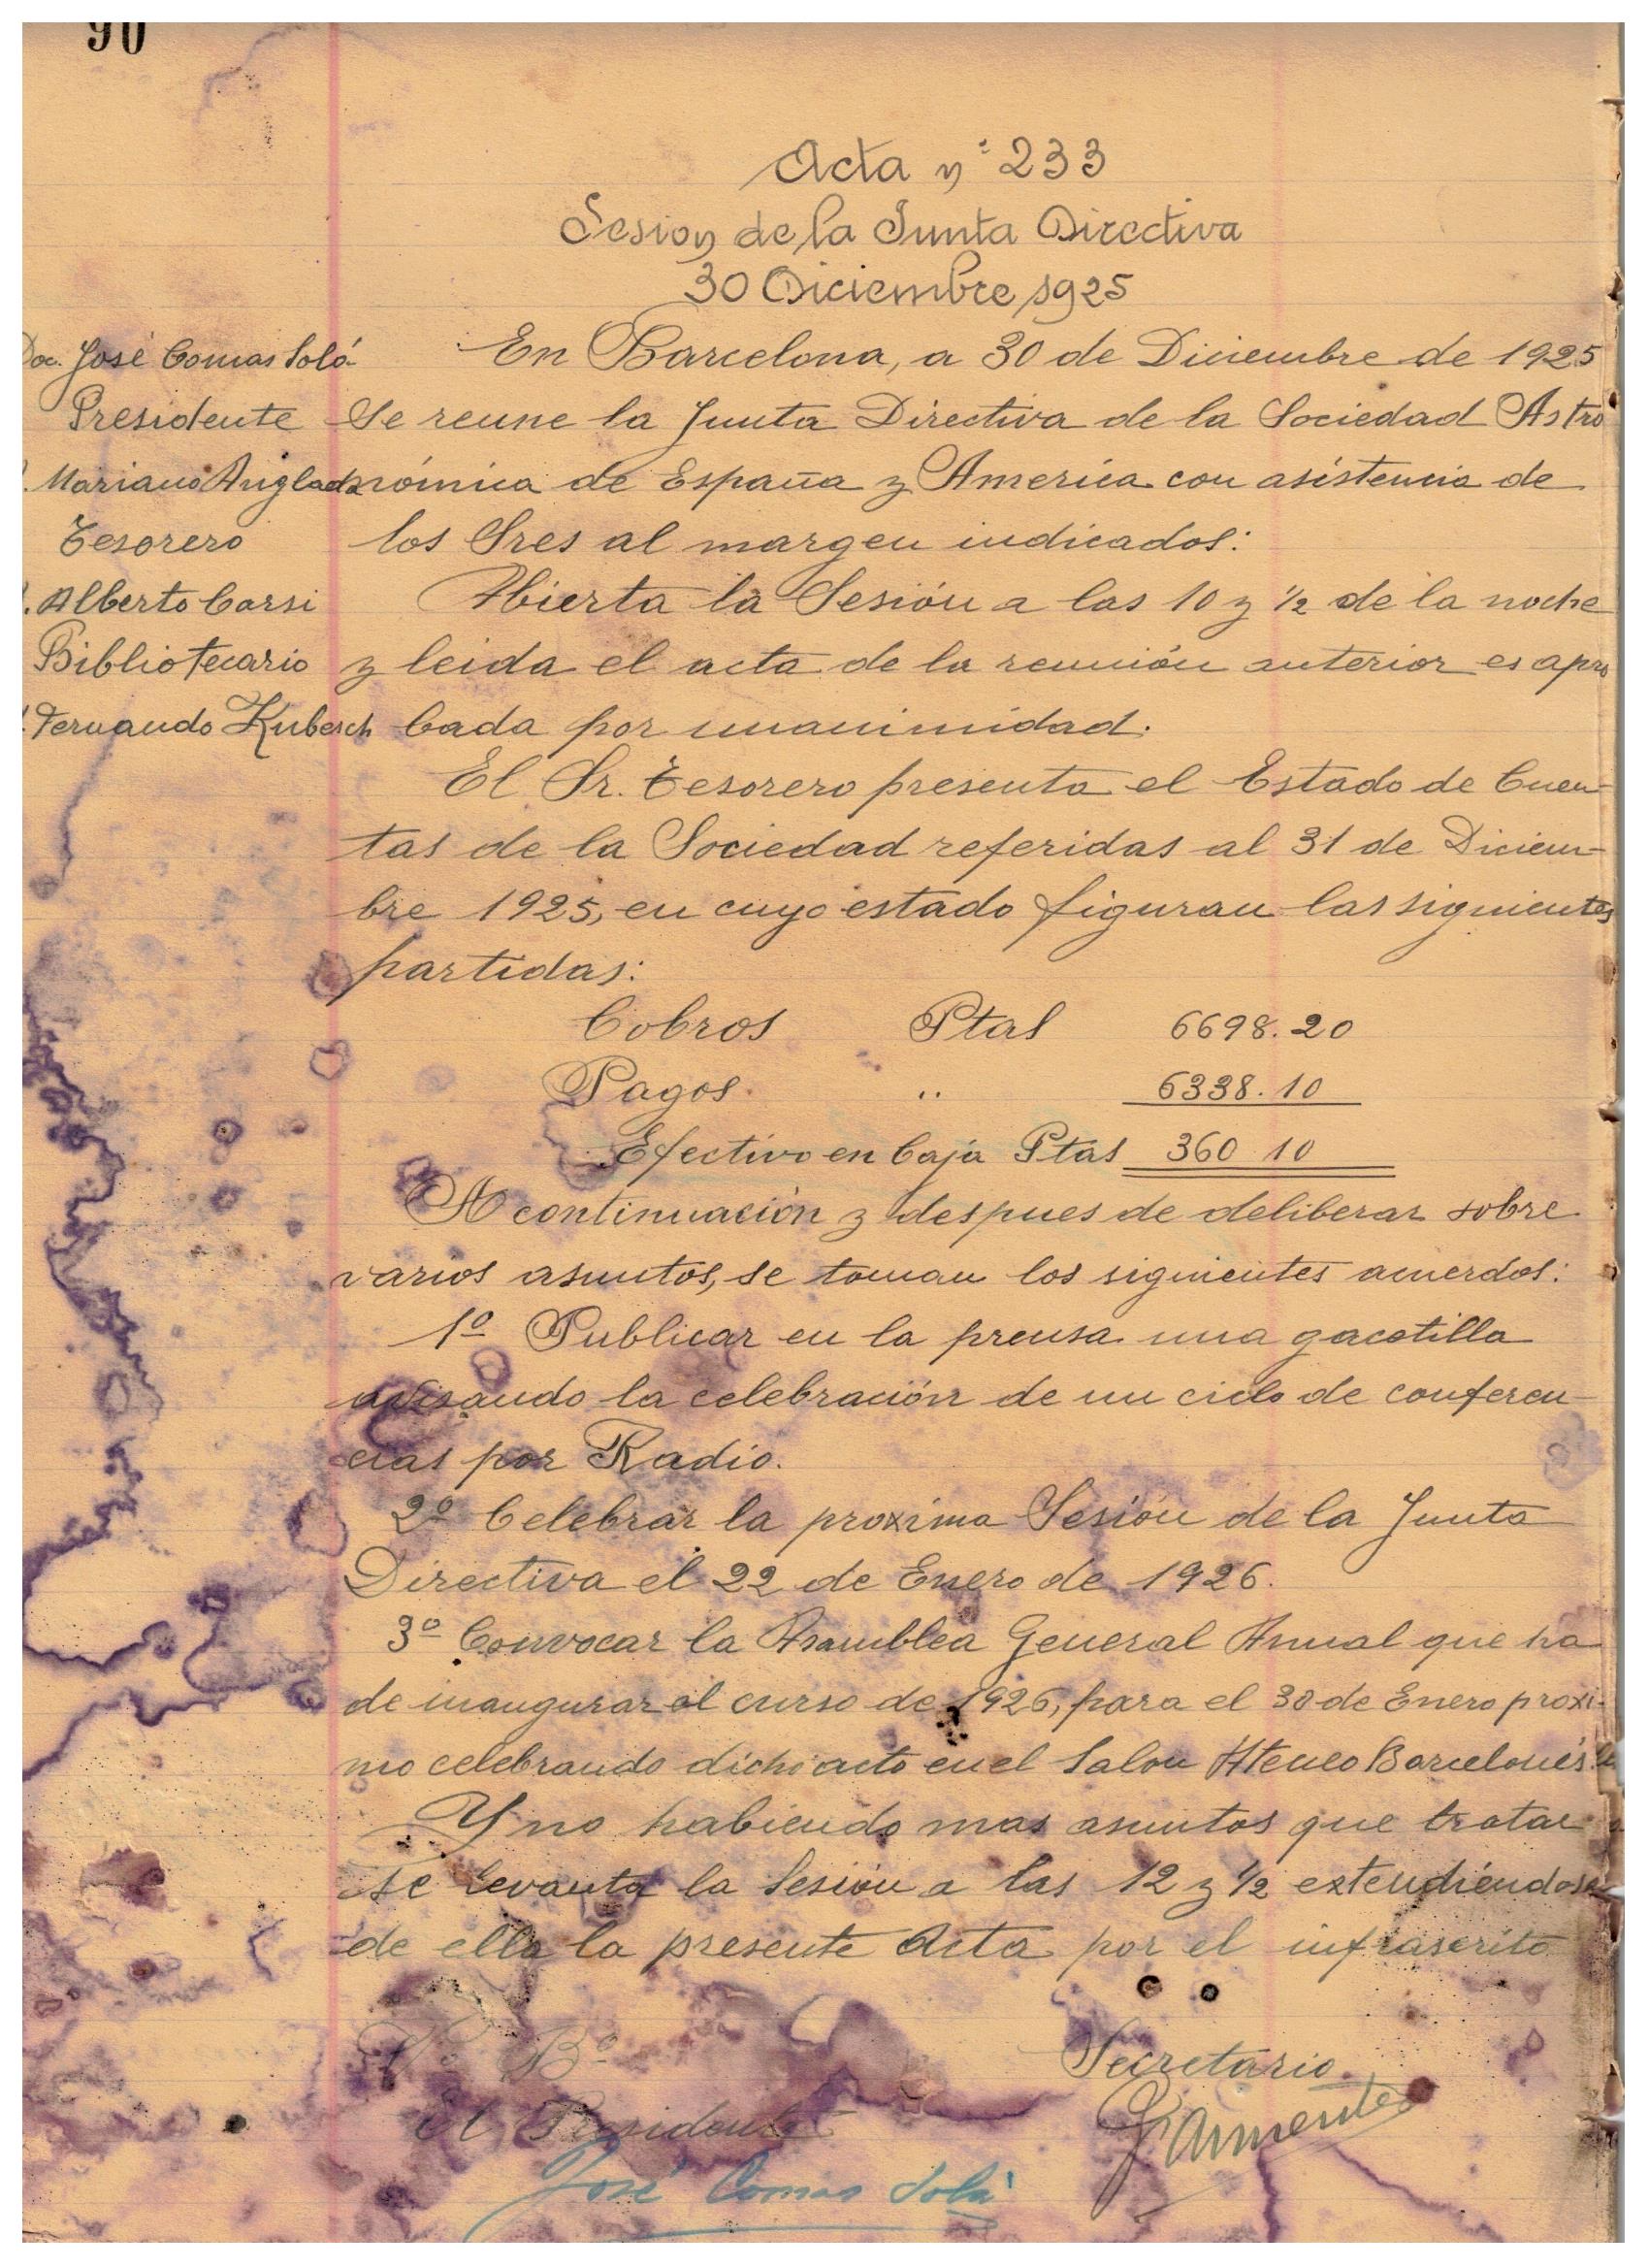 90
Acta nº 233
Sesion de la Junta Directiva
30 Diciembre 1925
Doc. José Comas Solá
Presidente
D. Mariano Anglada
Tesorero
D. Alberto Carsi
Bibliotecario
D. Fernando Kubesch
En Barcelona, a 30 de Diciembre de 1925
se reune la Junta Directiva de la Sociedad Astro
nómica de España y America con asistencia de
los Sres al margen indicados:
Abierta la Sesión a las 10 y ½ de la noche
y leida el acta de la reunión anterior es apro
bada por unanimidad.
El Sr. Tesorero presenta el Estado de Cuen-
tas de la Sociedad referidas al 31 de Diciem-
bre 1925, en cuyo estado figuran las siguientes
partidas:
Cobros Ptas 6698.20
Pagos " 6338.10
Efectivo en Caja Ptas 360 10
A continuación y despues de deliberar sobre
varios asuntos, se toman los siguientes acuerdos:
1º Publicar en la prensa una gacetilla
avisando la celebración de un ciclo de conferen-
cias por Radio.
2º Celebrar la proxima Sesión de la Junta
Directiva el 22 de Enero de 1926.
3º Convocar la Asamblea General Anual que ha
de inaugurar el curso de 1926, para el 30 de Enero proxi-
mo celebrando dicho acto en el Salon Ateneo Barcelonés
Y no habiendo mas asuntos que tratar
se levanta la Sesión a las 12 y ½ extendiéndose
de ella la presente Acta por el infrascrito
Vº Bº
El Presidente
José Comas Solá
Secretario